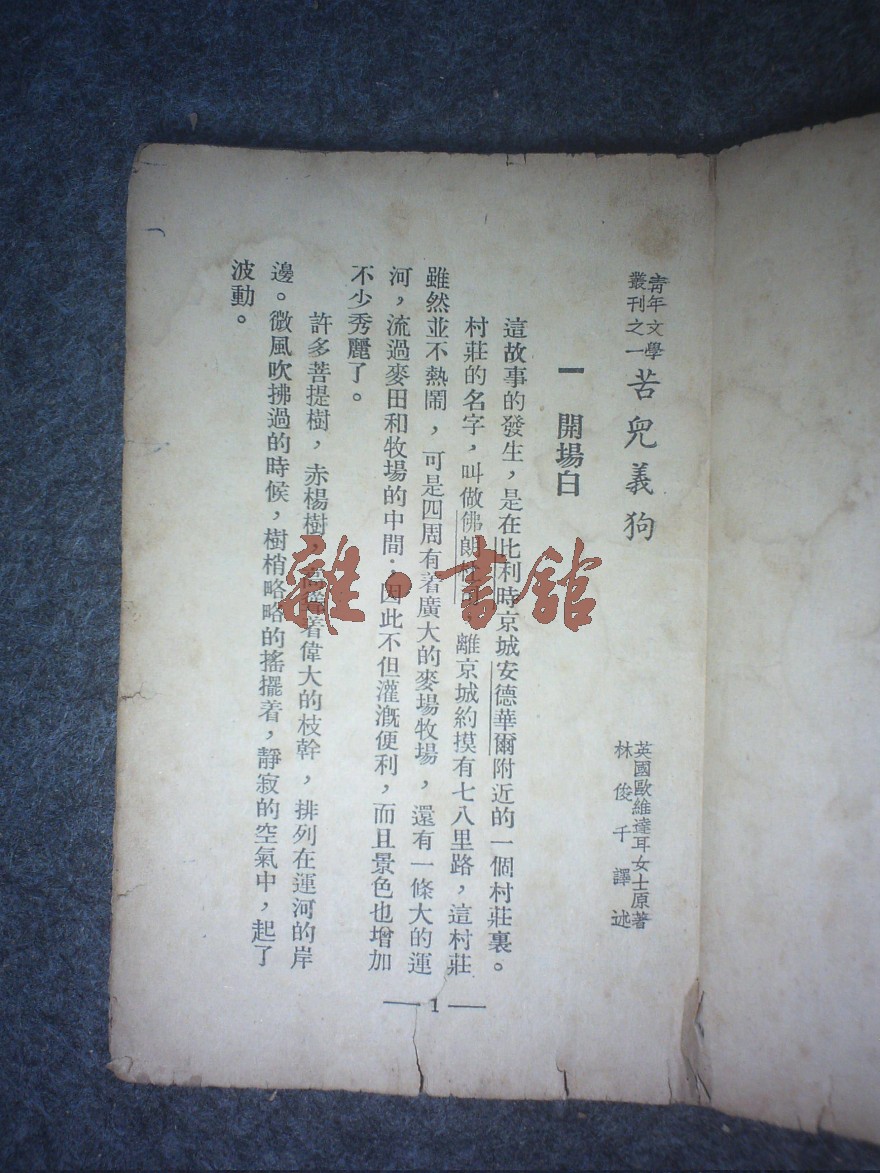 青年文學
叢刊之一
苦兒義狗
英國歐維達耳女士原著
林俊千譯述
一 開場白
這故事的發生，是在比利時京城安德華爾附近的一個村莊裏。
村莊的名字，叫做佛朗 離京城約摸有七八里路，這村莊
雖然並不熱鬧，可是四周有着廣大的麥場牧場，還有一條大的運
河，流過麥田和牧場的中間，因此不但灌漑便利，而且景色也增加
不少秀麗了。
許多菩提樹，赤楊樹， 着偉大的枝幹，排列在運河的岸
邊。微風吹拂過的時候，樹梢略略的搖擺着，靜寂的空氣中，起了
波動。
1
雜·書館